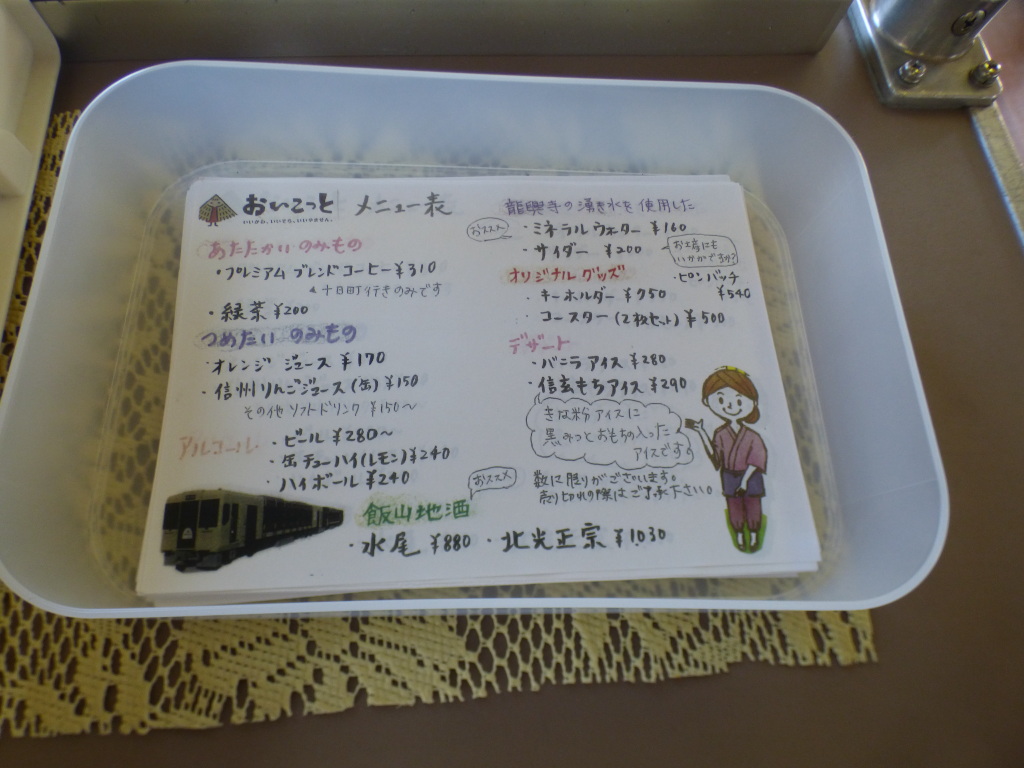 おいこっと メニュー表
あたたかいのみもの
・プレミアムブレンドコーヒー ¥310
▲十日町行きのみです
・緑茶 ¥200
つめたいのみもの
・オレンジジュース ¥170
・信州りんごジュース(缶) ¥150
その他ソフトドリンク ¥150〜
アルコール ・ビール ¥280〜
・缶チューハイ(レモン) ¥240
・ハイボール ¥240
おススメ
飯山地酒
・水尾 ¥880 ・北光正宗 ¥1,030
龍興寺の湧き水を使用した
おススメ ・ミネラルウォーター ¥160
・サイダー ¥200
お土産にも
いかがですか?
オリジナルグッズ
・ピンバッチ
¥540
・キーホルダー ¥750
・コースター(2枚セット) ¥500
デザート
・バニラアイス ¥280
・信玄もちアイス ¥290
きな粉アイスに
黒みつとおもちの入った
アイスです。
数に限りがございます。
売り切れの際はご了承下さい。